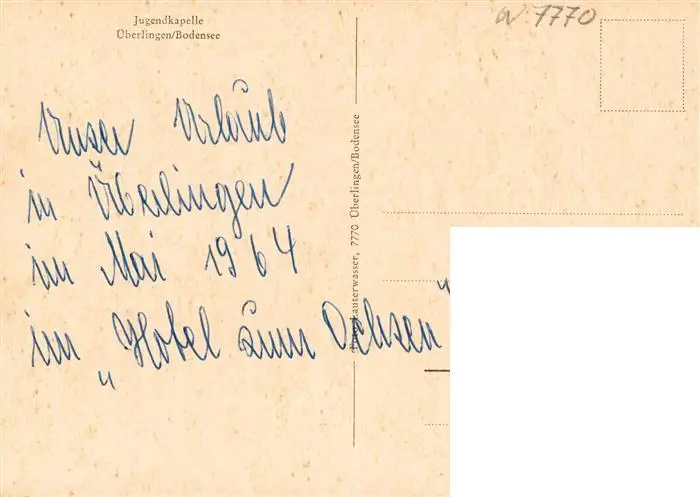 Jugendkapelle
Überlingen/Bodensee
W 7770
Unser Urlaub
in Überlingen
im Mai 1964
im „Hotel zum Ochsen"
Foto Lauterwasser, 7770 Überlingen/Bodensee